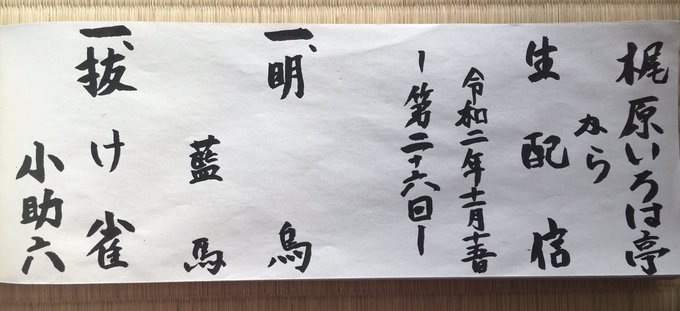 梶原いろは亭
から
生配信
令和二年十一月十五日
ー第二十六回ー
一、明烏
藍馬
一、抜け雀
小助六